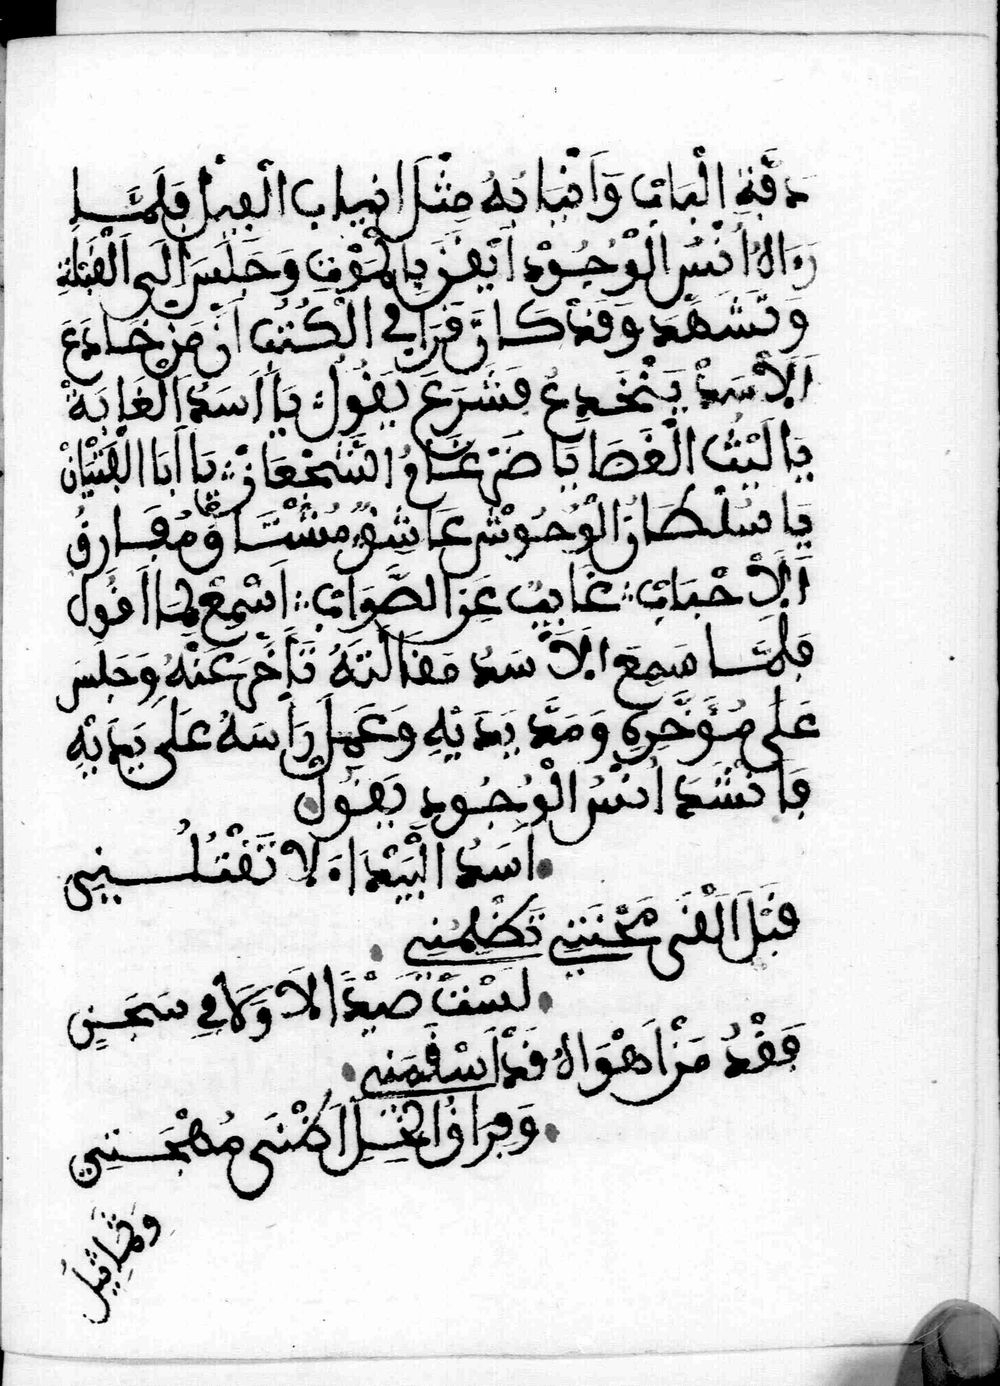 دفة الباب وانيابه مثل انياب الفيل فلما
رءاه أنس الوجود أيقن بالموت وجلس الى القبلة
وتشهد وقد كان قرا في الكتب ان من خادع
الأسد ينخدع فشرع يقول يا أسد الغابة
يا ليث الغضا يا ضرغام الشجعان يا أبا الفتيان
يا سلطان الوحوش عاشق مشتاق ومفارق
الأحباب غايب عن الصواب اسمع لما اقول
فلما سمع الأسد مقالته تأخر عنه وجلس
على مؤخره ومد يديه وعمل رأسه على يديه
فانشد انس الوجود يقول
اسد البيداء لا تقتلني
قبل القى محنتي تظلمني
لست صيدا لا ولا في سمن
فقد من اهواه قد اسقمني
وفراق الخل اضنى مهجتي
ومثاثيل